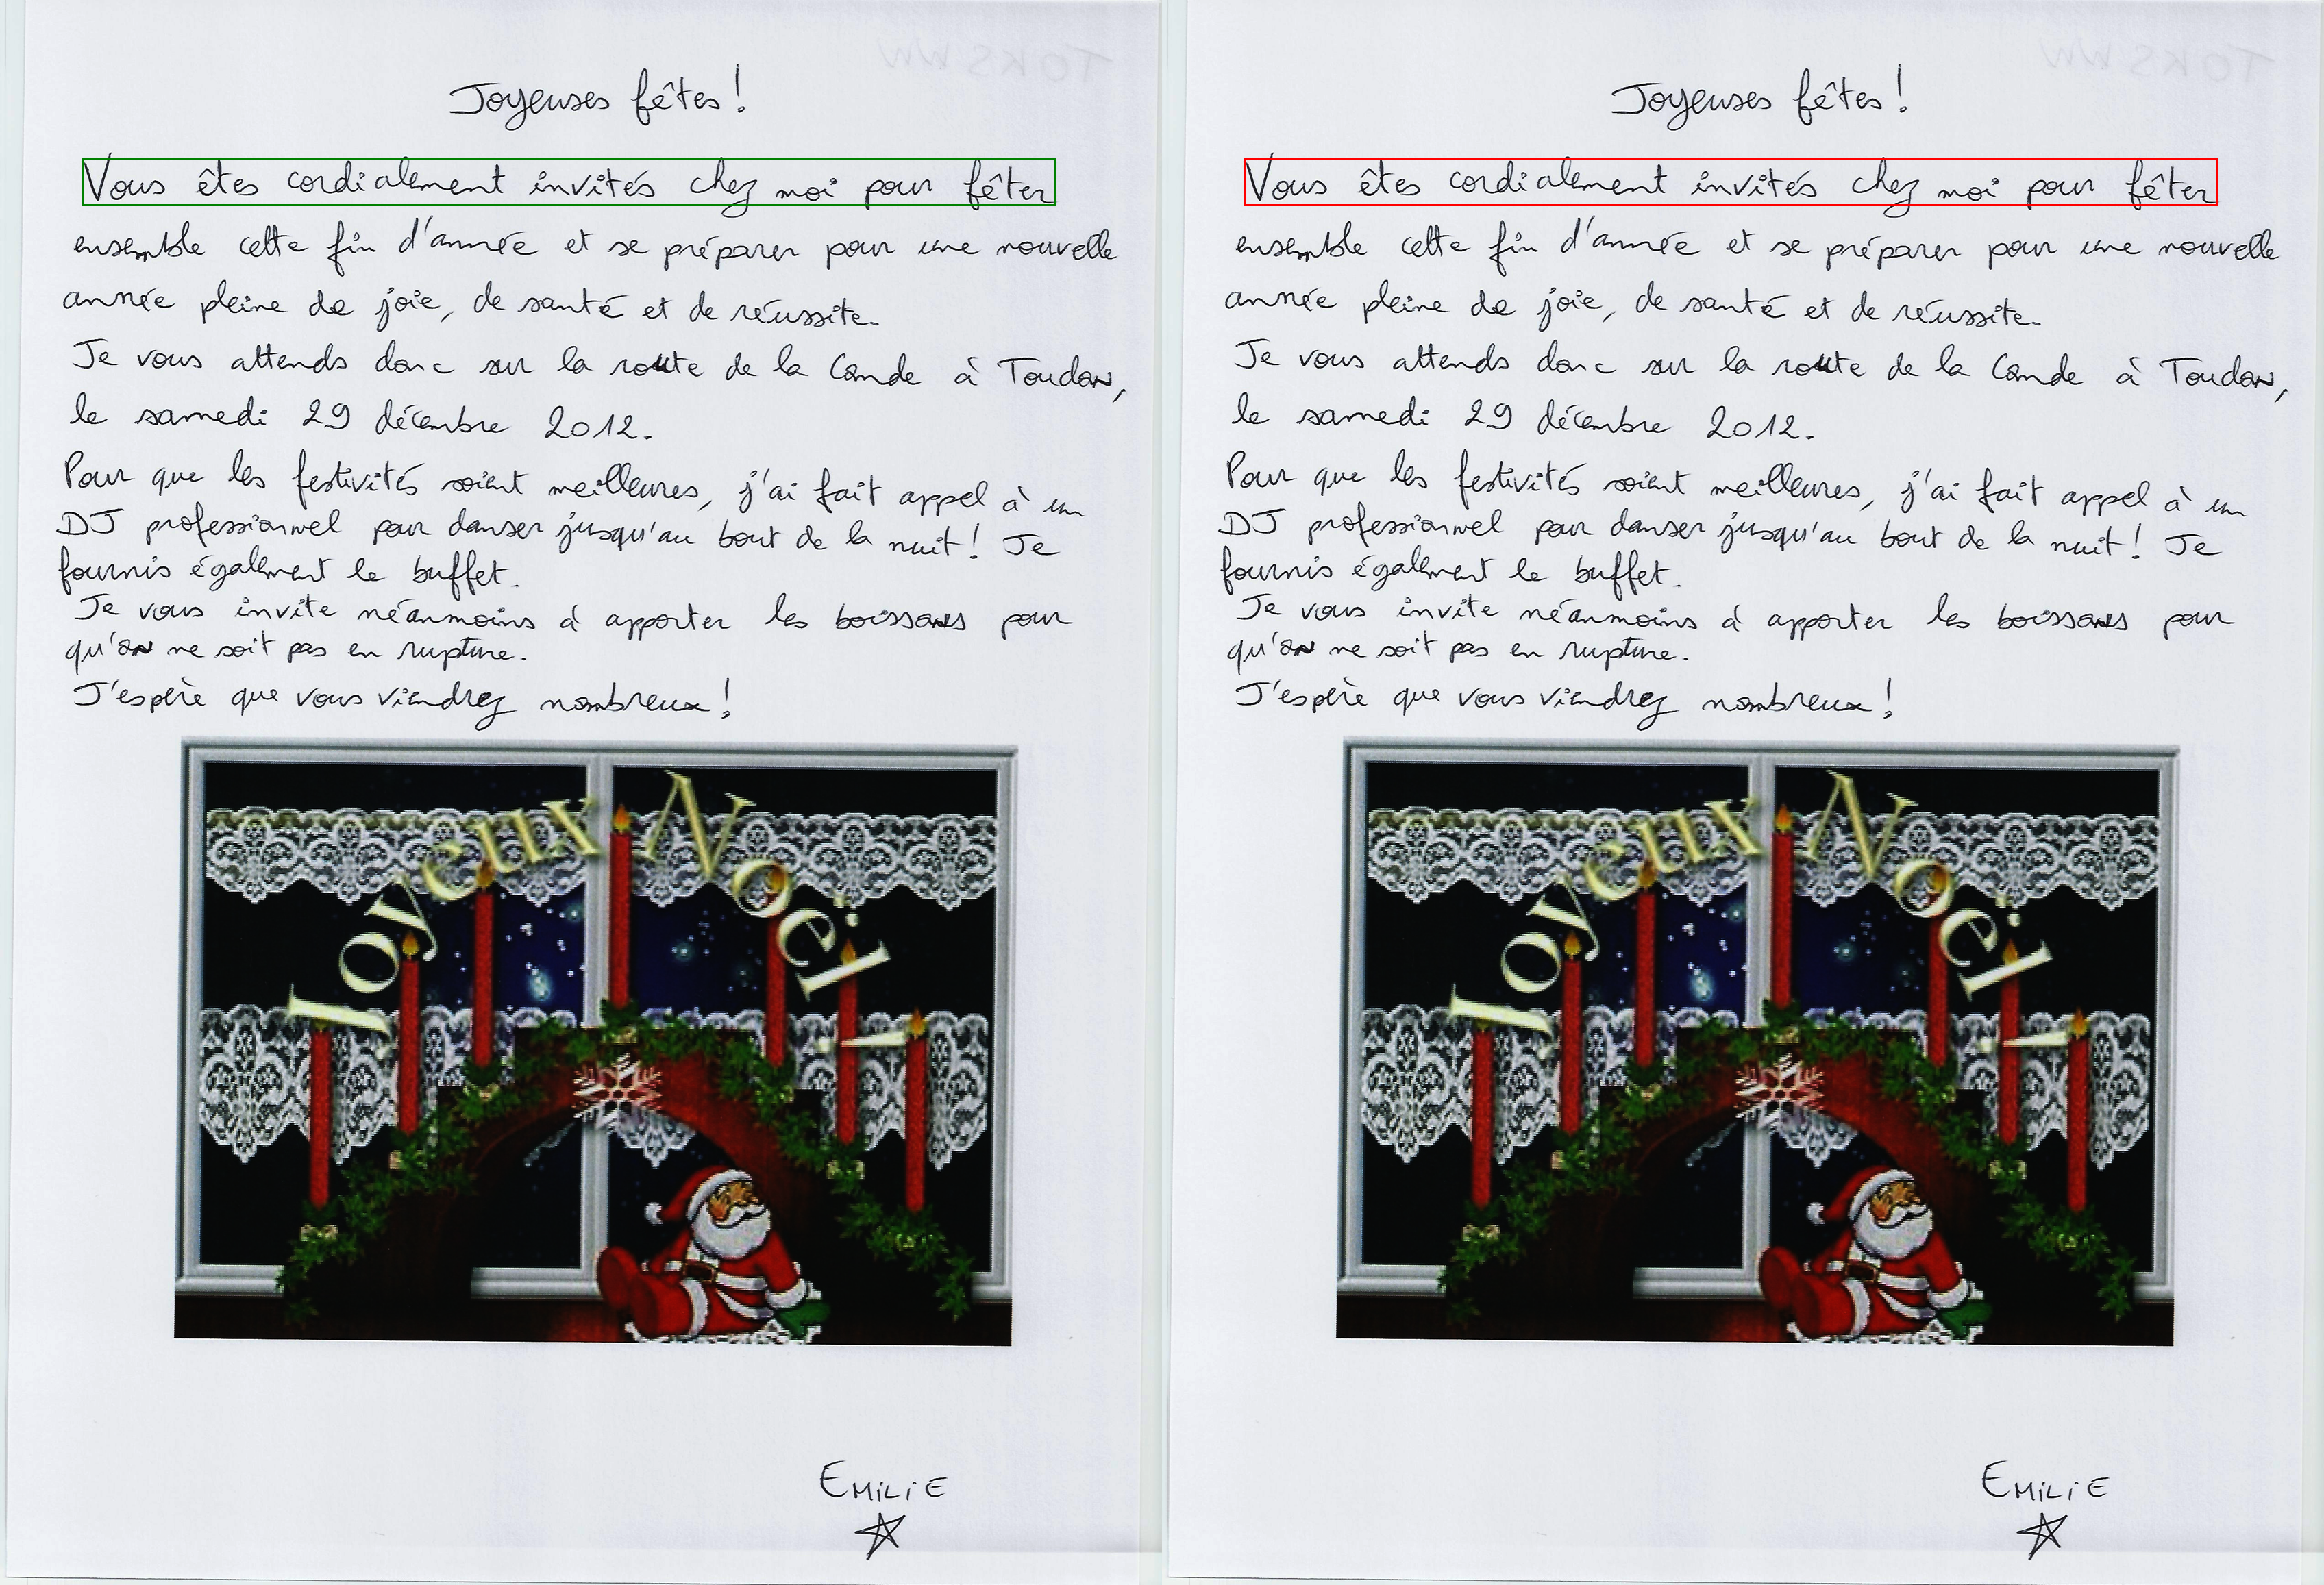 Joyeuses fêtes !
Vous êtes cordialement invités chez moi pour fêter
ensemble cette fin d'année et se préparer pour une nouvelle
année pleine de joie, de santé et de réussite.
Je vous attends donc sur la route de la Conde à Toudon,
le samedi 29 décembre 2012.
Pour que les festivités soient meilleures, j'ai fait appel à un
DJ professionnel pour danser jusqu'au bout de la nuit ! Je
fournis également le buffet.
Je vous invite néanmoins à apporter les boissons pour
qu'on ne soit pas en rupture.
J'espère que vous viendrez nombreux !
Joyeux Noël !
EMILIE
Joyeuses fêtes !
Vous êtes cordialement invités chez moi pour fêter
ensemble cette fin d'année et se préparer pour une nouvelle
année pleine de joie, de santé et de réussite.
Je vous attends donc sur la route de la Conde à Toudon,
le samedi 29 décembre 2012.
Pour que les festivités soient meilleures, j'ai fait appel à un
DJ professionnel pour danser jusqu'au bout de la nuit ! Je
fournis également le buffet.
Je vous invite néanmoins à apporter les boissons pour
qu'on ne soit pas en rupture.
J'espère que vous viendrez nombreux !
Joyeux Noël !
EMILIE